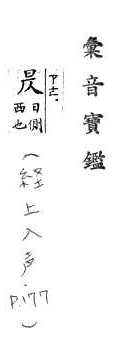 彙音寶鑑
昃
日側
西也
(経上入声, P.177)